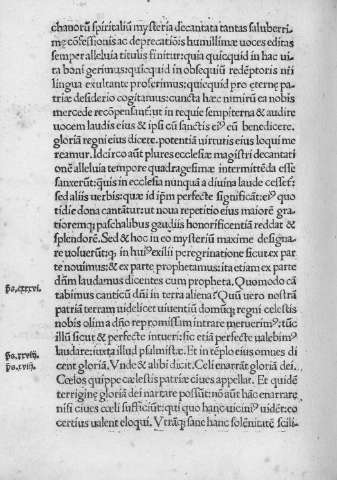 chanorū spiritaliū mysteria decantata tantas saluberri
mę cōfessionis ac deprecatiōis humillimæ uoces editas
semper alleluia titulis finitur: quia quicquid in hac ui
ta boni gerimus: quicquid in obsequiū redēptoris nr̄i
lingua exultante proferimus: quicquid pro eternę pa
triæ desiderio cogitamus: cuncta hæc nimirū ea nobis
mercede recōpensant̄: ut in requie sempiterna & audire
uocem laudis eius & ipsi cū sanctis eiꝰ eū benedicere.
gloriā regni eius dicere. potentiā uirtutis eius loqui me
reamur. Idcirco aūt plures ecclesiæ magistri decantati
onē alleluia tempore quadragesimæ intermittēda esse
sanxerūt: quis in ecclesia nunquā a diuina laude cesset:
sed aliis uerbis: quæ id ip̄m perfecte significāt: eiꝰ quo
tidie dona cantātur: ut noua repetitio eius maiorē gra
tioremq; paschalibus gaudiis honorificentiā reddat &
splendorē. Sed & hoc in eo mysteriū maxime designa
re uoluerūt: q; in huiꝰ exilii peregrinatione sicut ex par
te nouimus: & ex parte prophetamus: ita etiam ex parte
dn̄m laudamus dicentes cum propheta. Quomodo cā
tabimus canticū dn̄i in terra aliena? Quū uero nostrā
patriā terram uidelicet uiuentiū domūq; regni celestis
nobis olim a dn̄o repromissam intrare meruerimꝰ: tūc
illū sicut & perfecte intueri: sic etiā perfecte ualebimꝰ
laudare: iuxta illud psalmistæ. Et in tēplo eius omnes di
cent gloriā. Vnde & alibi dicit. Celi enarrāt gloriā dei.
Cœlos quippe cælestis patriæ ciues appellat. Et quidē
terrigine gloriā dei narrare possūt: nō aūt hāc enarrare
nisi ciues cœli sufficiūt: qui quo hanc uiciniꝰ uidēt: eo
certius ualent eloqui. Vtrāq; sane hanc solēnitatē scili-
ps. cxxxvi.
ps. xxviii.
ps. xviii.